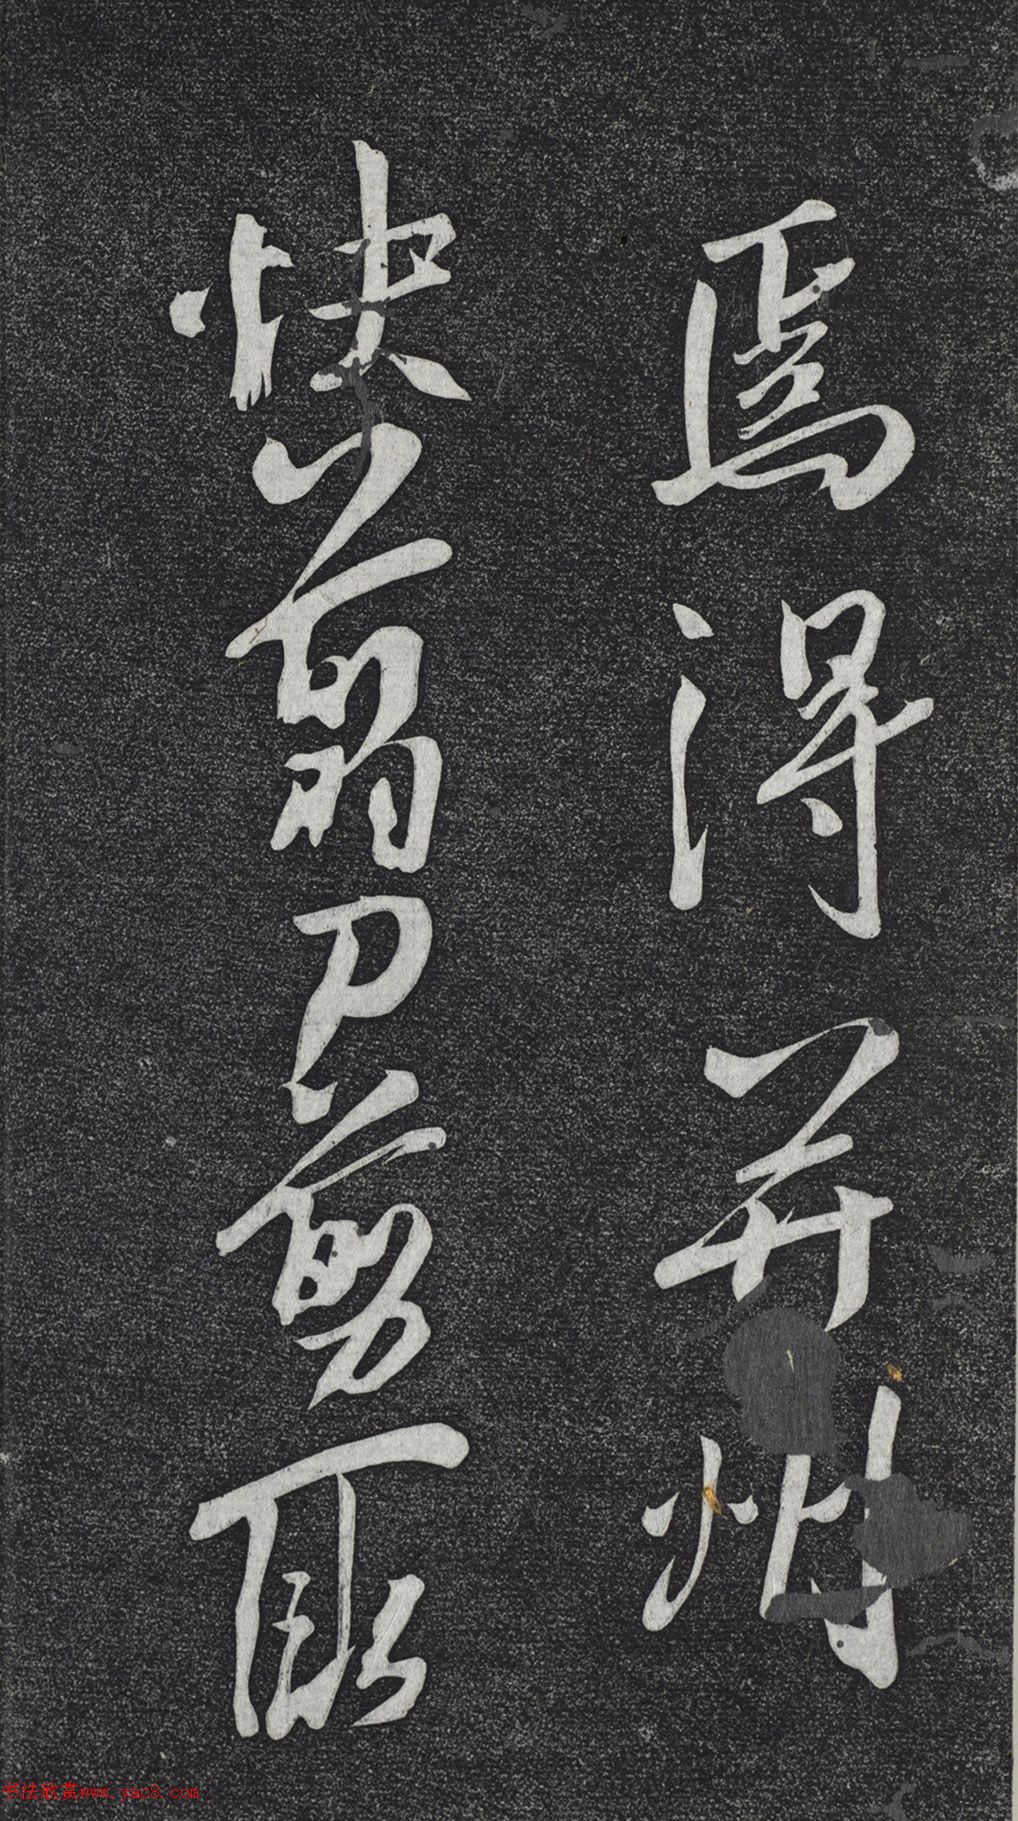 焉得并州
快翦刀剪取
书法欣赏www.yac8.com